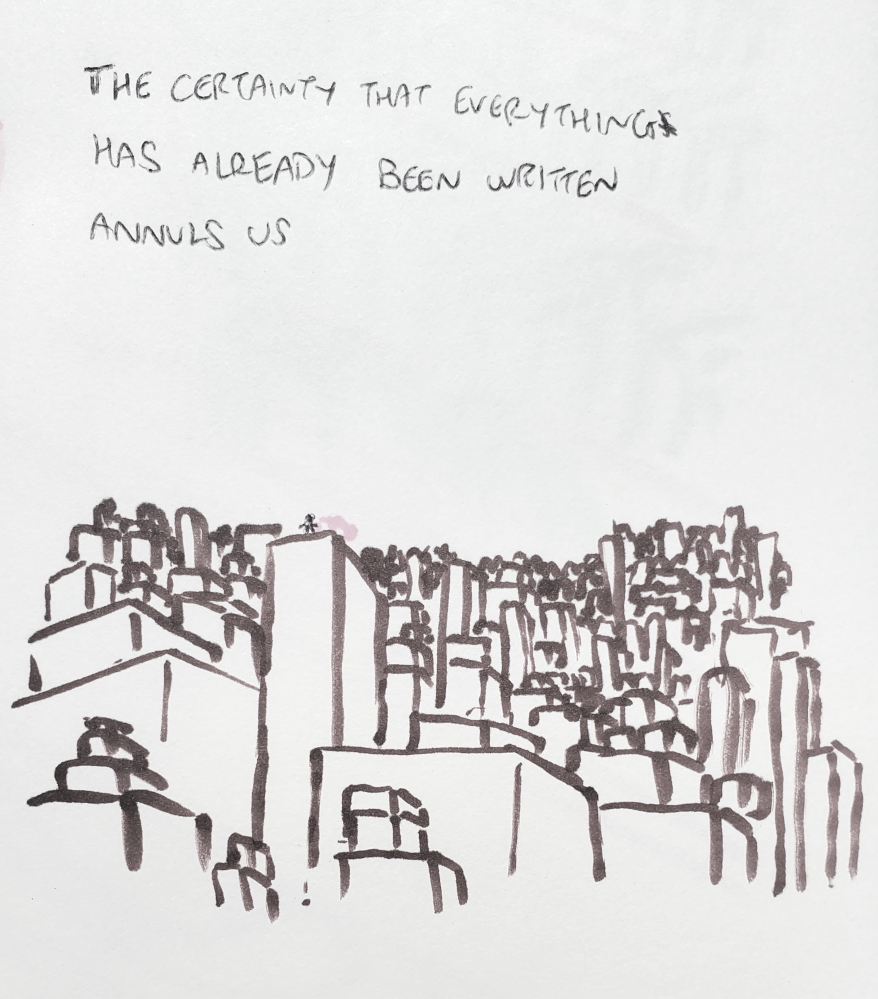 THE CERTAINTY THAT EVERYTHING
HAS ALREADY BEEN WRITTEN
ANNULS US